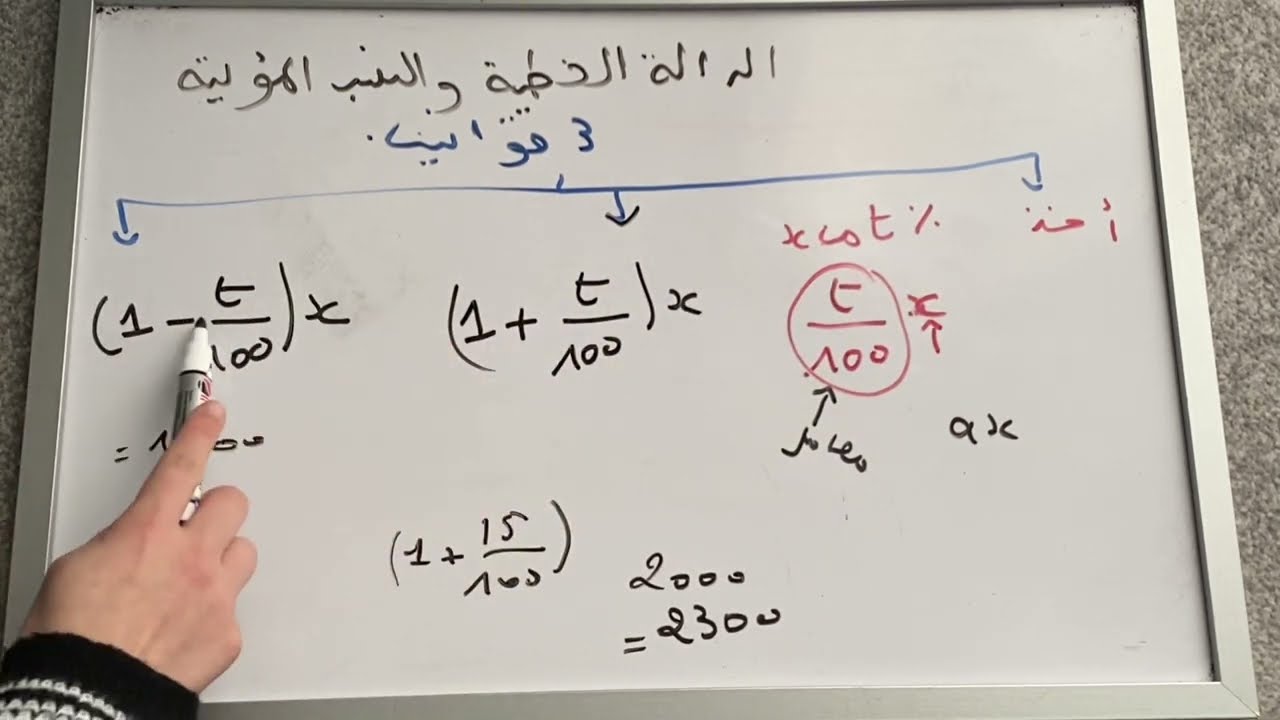 الدالة الخطية والنسب المؤوية
3 قوانين.
أخذ
x من t %
t/100 x
معامل
ax
(1 + t/100) x
(1 - t/100) x
(1 + 15/100) 2000
= 2300